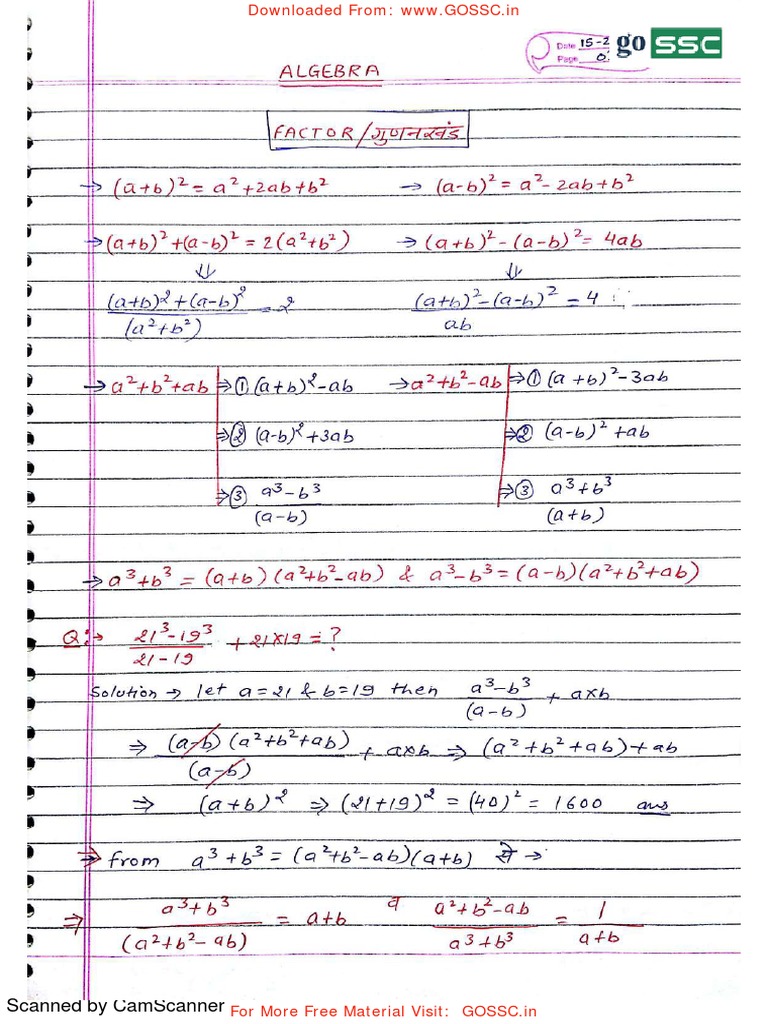 Downloaded From: www.GOSSC.in
Date 15-2
Page 0:
go SSC
ALGEBRA
FACTOR/गुणनखंड
→ (a+b)² = a²+2ab+b² → (a-b)² = a²-2ab+b²
→ (a+b)²+(a-b)² = 2(a²+b²) → (a+b)²-(a-b)² = 4ab
⇓ ⇓
(a+b)²+(a-b)² / (a²+b²) = 2 (a+b)²-(a-b)² / ab = 4
→ a²+b²+ab ⇒ ① (a+b)²-ab → a²+b²-ab ⇒ ① (a+b)²-3ab
⇒ ② (a-b)²+3ab ⇒ ② (a-b)²+ab
⇒ ③ a³-b³ / (a-b) ⇒ ③ a³+b³ / (a+b)
→ a³+b³ = (a+b)(a²+b²-ab) & a³-b³ = (a-b)(a²+b²+ab)
Q:→ 21³-19³ / 21-19 + 21×19 = ?
Solution → let a=21 & b=19 then a³-b³ / (a-b) + a×b
⇒ (a-b)(a²+b²+ab) / (a-b) + a×b ⇒ (a²+b²+ab)+ab
⇒ (a+b)² ⇒ (21+19)² = (40)² = 1600 ans
⇒ from a³+b³ = (a²+b²-ab)(a+b) से →
⇒ a³+b³ / (a²+b²-ab) = a+b व a²+b²-ab / a³+b³ = 1 / a+b
Scanned by CamScanner
For More Free Material Visit: GOSSC.in